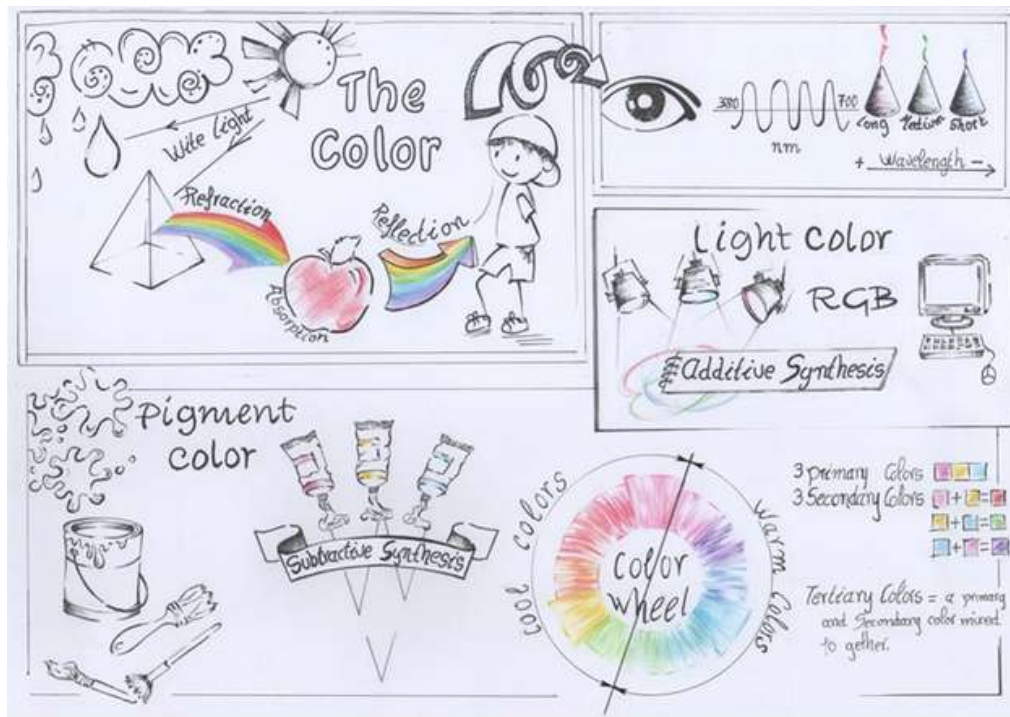 The
Color
Wite light
Refraction
Absorption
Reflection
380
700
nm
Long
Medium
Short
+ Wavelength -
Light color
RGB
Additive Synthesis
Pigment
color
Subtractive Synthesis
cool colors
warm colors
Color
wheel
3 primary Colors
3 Secondary Colors + =
+ =
+ =
Tertiary Colors = a primary
and Secondary color mixed
to gether.